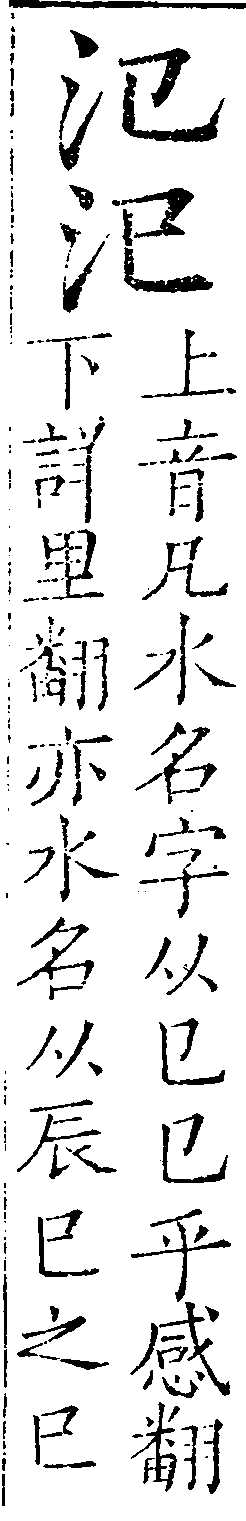 氾汜
上音凡水名字从㔾㔾乎感翻
下詳里翻亦水名从辰巳之巳